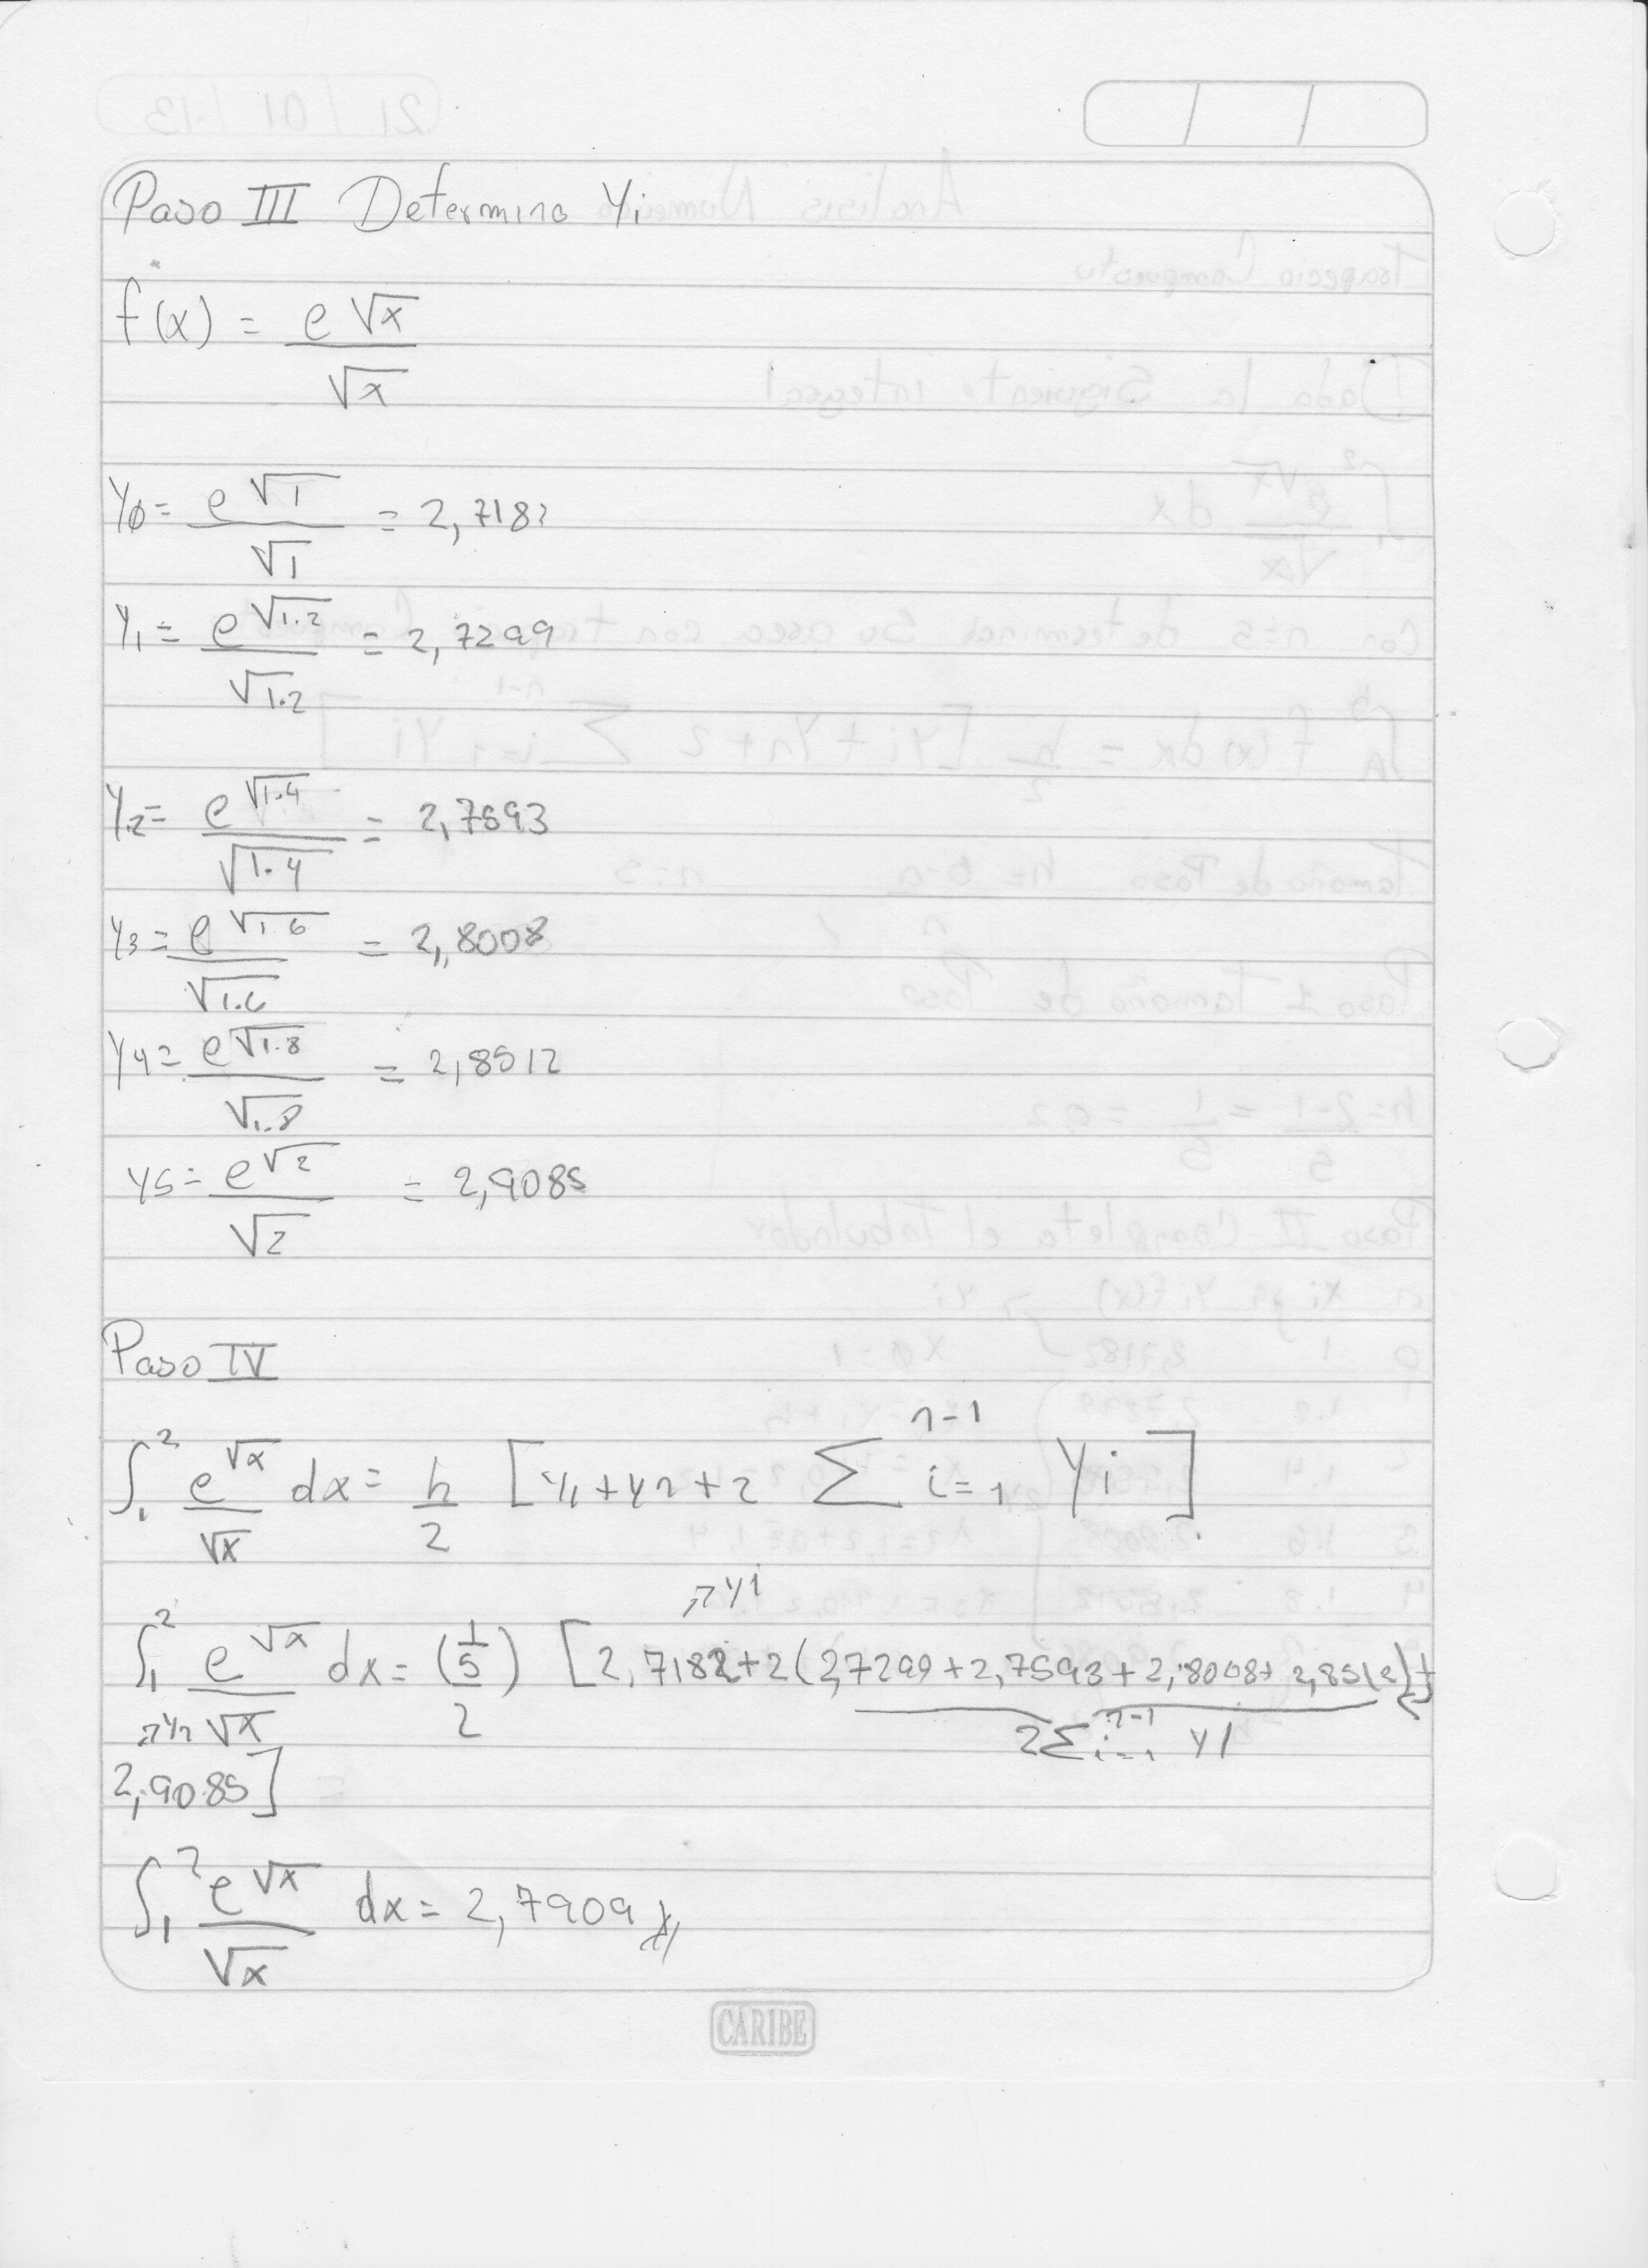 Paso III Determino Yi
f(x) = e√x / √x
Y0 = e√1 / √1 = 2,7182
Y1 = e√1.2 / √1.2 = 2,7299
Y2 = e√1.4 / √1.4 = 2,7593
Y3 = e√1.6 / √1.6 = 2,8008
Y4 = e√1.8 / √1.8 = 2,8512
Y5 = e√2 / √2 = 2,9085
Paso IV
∫₁² e√x / √x dx = h / 2 [Y1 + Yn + 2 Σ i=1 n-1 Yi]
→Y1
∫₁² e√x / √x dx = (1/5) / 2 [2,7182+2(2,7299+2,7593+2,8008+2,8512)+
→Yn 2Σ i=1 n-1 Y1
2,9085]
∫₁² e√x / √x dx = 2,7909
CARIBE